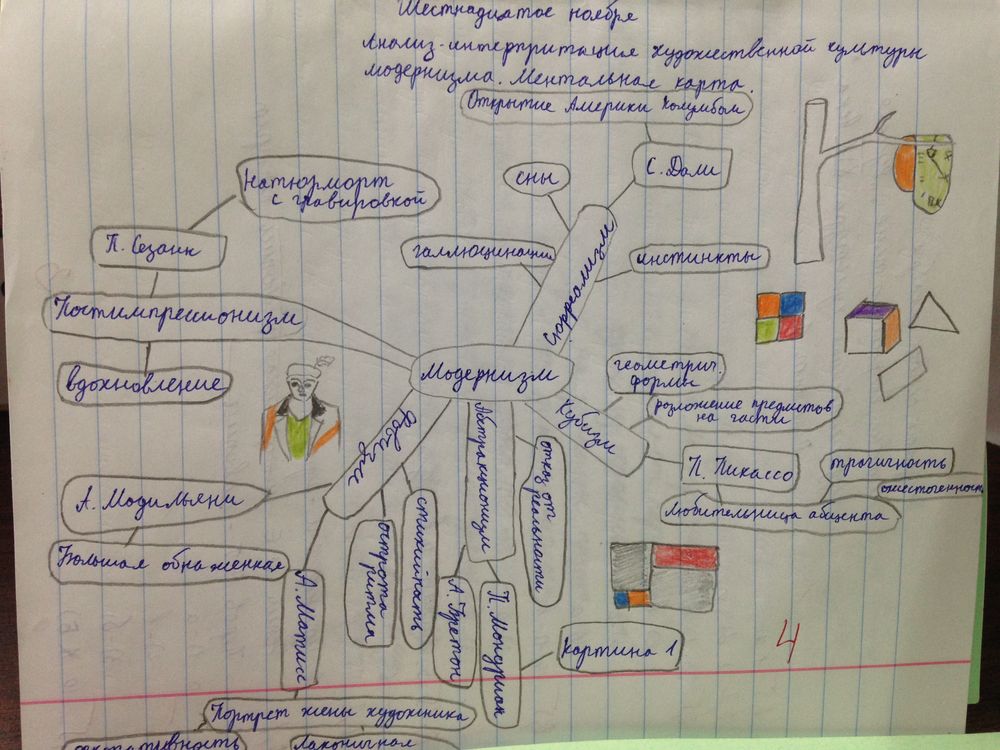 Шестнадцатое ноября
Анализ-интерпритация художественной культуры
модернизма. Ментальная карта.
Открытие Америки Колумбом
С. Дали
сны
галлюцинации
инстинкты
Сюрреализм
Натюрморт
с гравировкой
П. Сезанн
Постимпресионизм
вдохновление
Модернизм
геометрич.
формы
розложение предметов
на части
Кубизм
П. Пикассо
трагичность
ожесточенность
Любительница абцента
Фовизм
А. Модильяни
Большая обнаженная
А. Матисс
острота
ритма
стихийность
Портрет жены художника
лаконичная
Абстракционизм
отказ от
реальности
А. Бретон
П. Мондриан
Картина 1
4